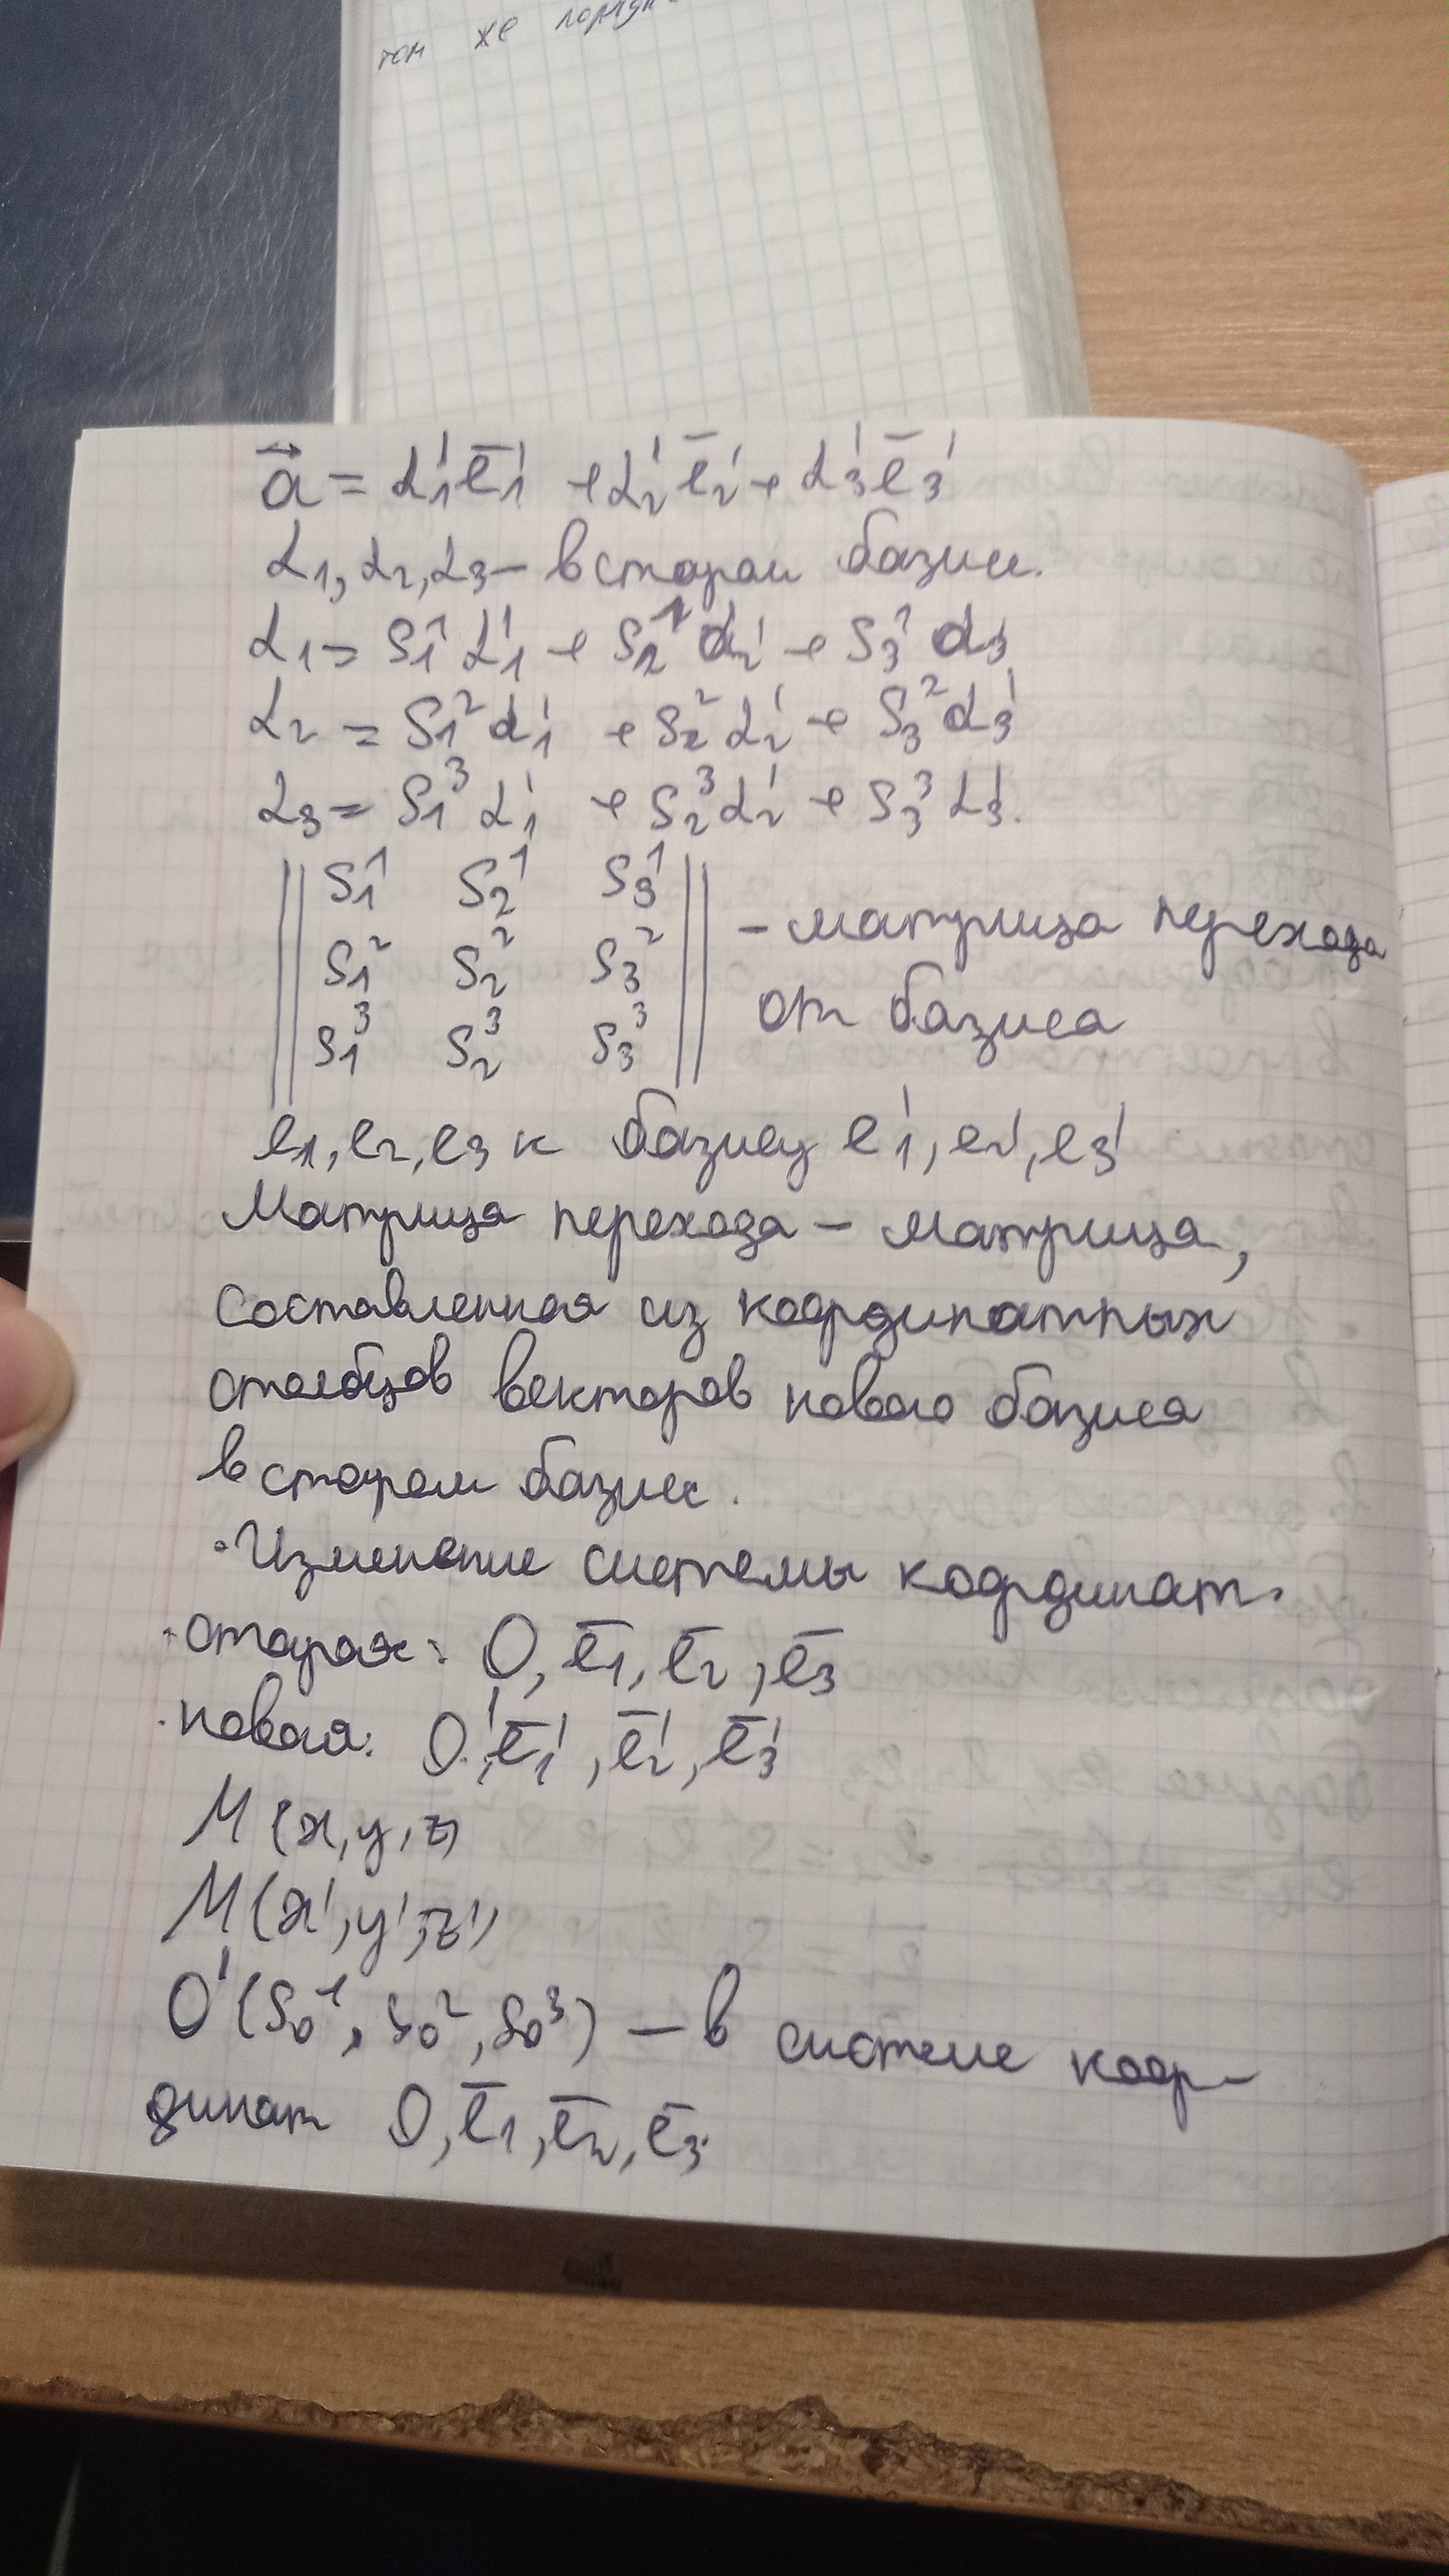 том же
a⃗ = α₁'ē₁' + α₂'ē₂' + α₃'ē₃'
α₁, α₂, α₃ – в старом базисе.
α₁ = S₁¹ α₁' + S₂¹ α₂' + S₃¹ α₃'
α₂ = S₁² α₁' + S₂² α₂' + S₃² α₃'
α₃ = S₁³ α₁' + S₂³ α₂' + S₃³ α₃'.
|| S₁¹ S₂¹ S₃¹ ||
|| S₁² S₂² S₃² || – матрица перехода
|| S₁³ S₂³ S₃³ || от базиса
e₁, e₂, e₃ к базису e₁', e₂', e₃'
Матрица перехода – матрица,
составленная из координатных
столбцов векторов нового базиса
в старом базисе.
· Изменение системы координат.
· старая: O, ē₁, ē₂, ē₃
· новая: O', ē₁', ē₂', ē₃'
M (x, y, z)
M (x', y', z')
O' (S₀¹, S₀², S₀³) – в системе коор-
динат O, ē₁, ē₂, ē₃.